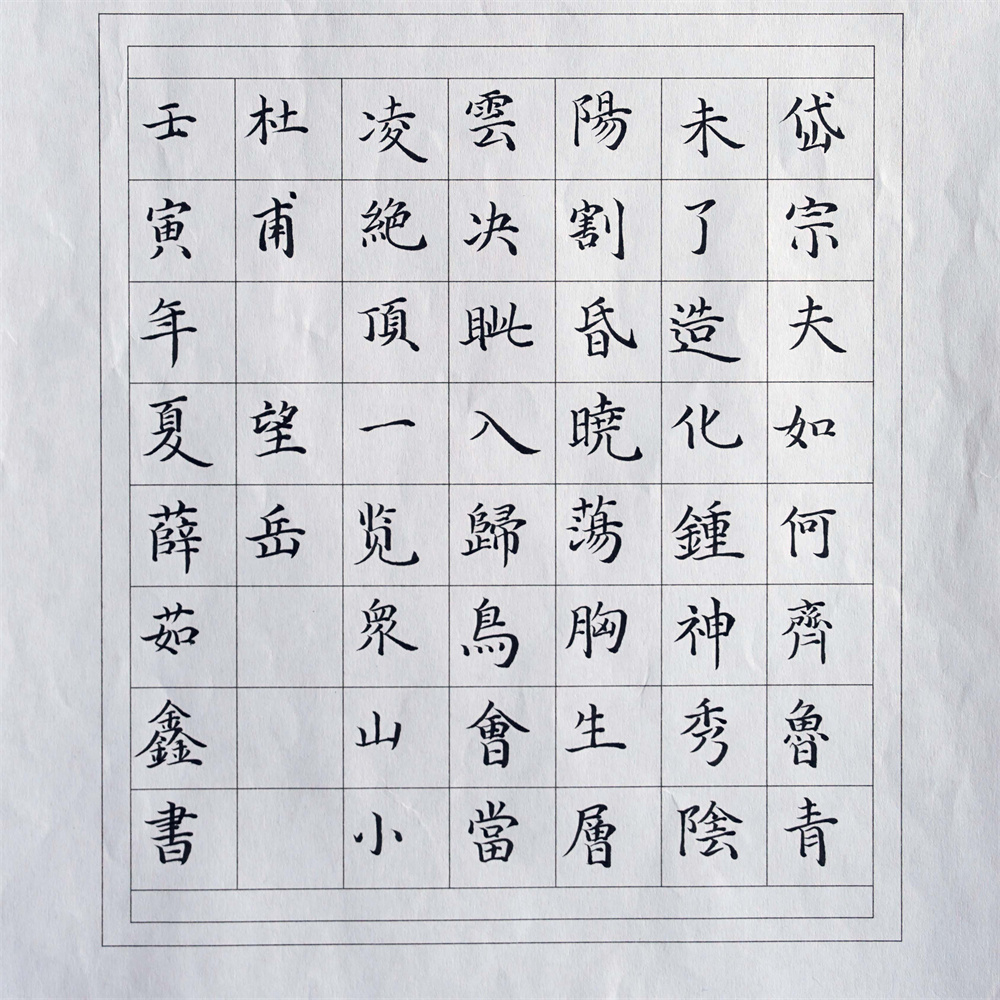 岱宗夫如何齊魯青
未了造化鍾神秀陰
陽割昏曉蕩胸生層
雲决眦入歸鳥會當
凌絶頂一览衆山小
杜甫 望岳
壬寅年夏薛茹鑫書